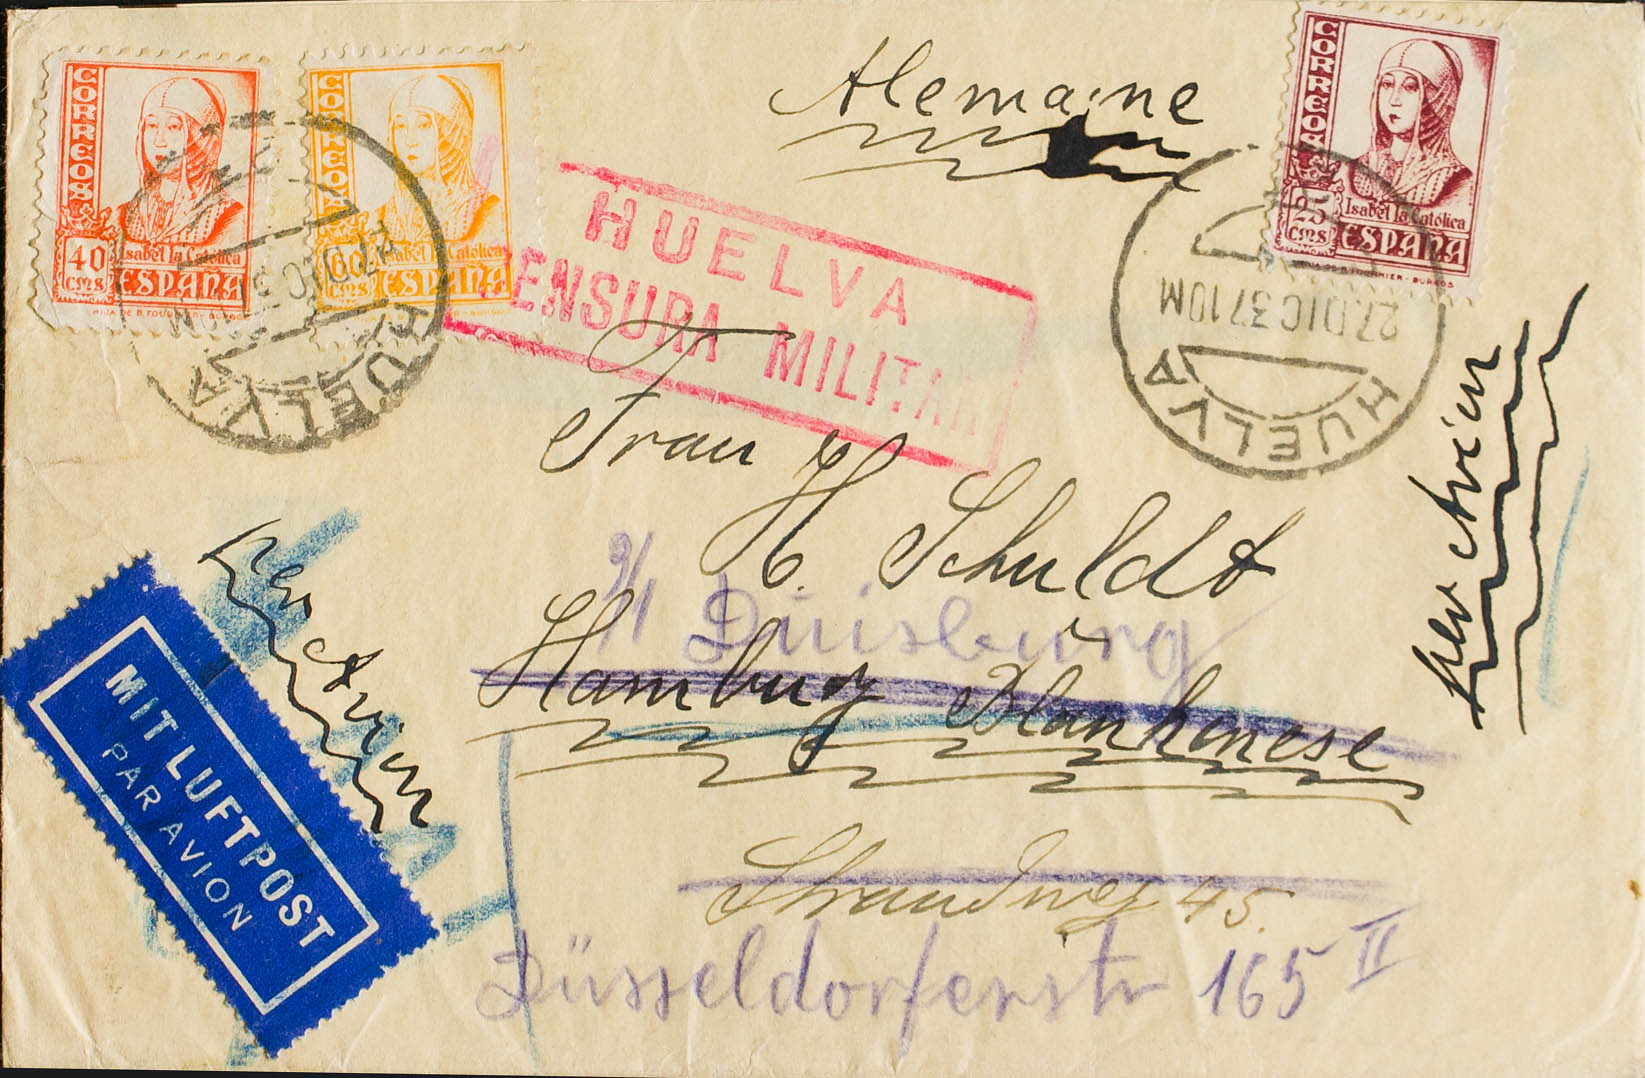 CORREOS
40 cms
Isabel la Católica
ESPAÑA
CORREOS
60 cms
Isabel la Católica
ESPAÑA
CORREOS
25 cms
Isabel la Católica
ESPAÑA
Alemaine
HUELVA
CENSURA MILITAR
HUELVA
27.DIC 37.10M
HUELVA
Frau H. Schuldt
Duisburg
Hamburg Blankenese
Strandweg 45.
Düsseldorferstr 165 II
per Avion
per Avion
MIT LUFTPOST
PAR AVION